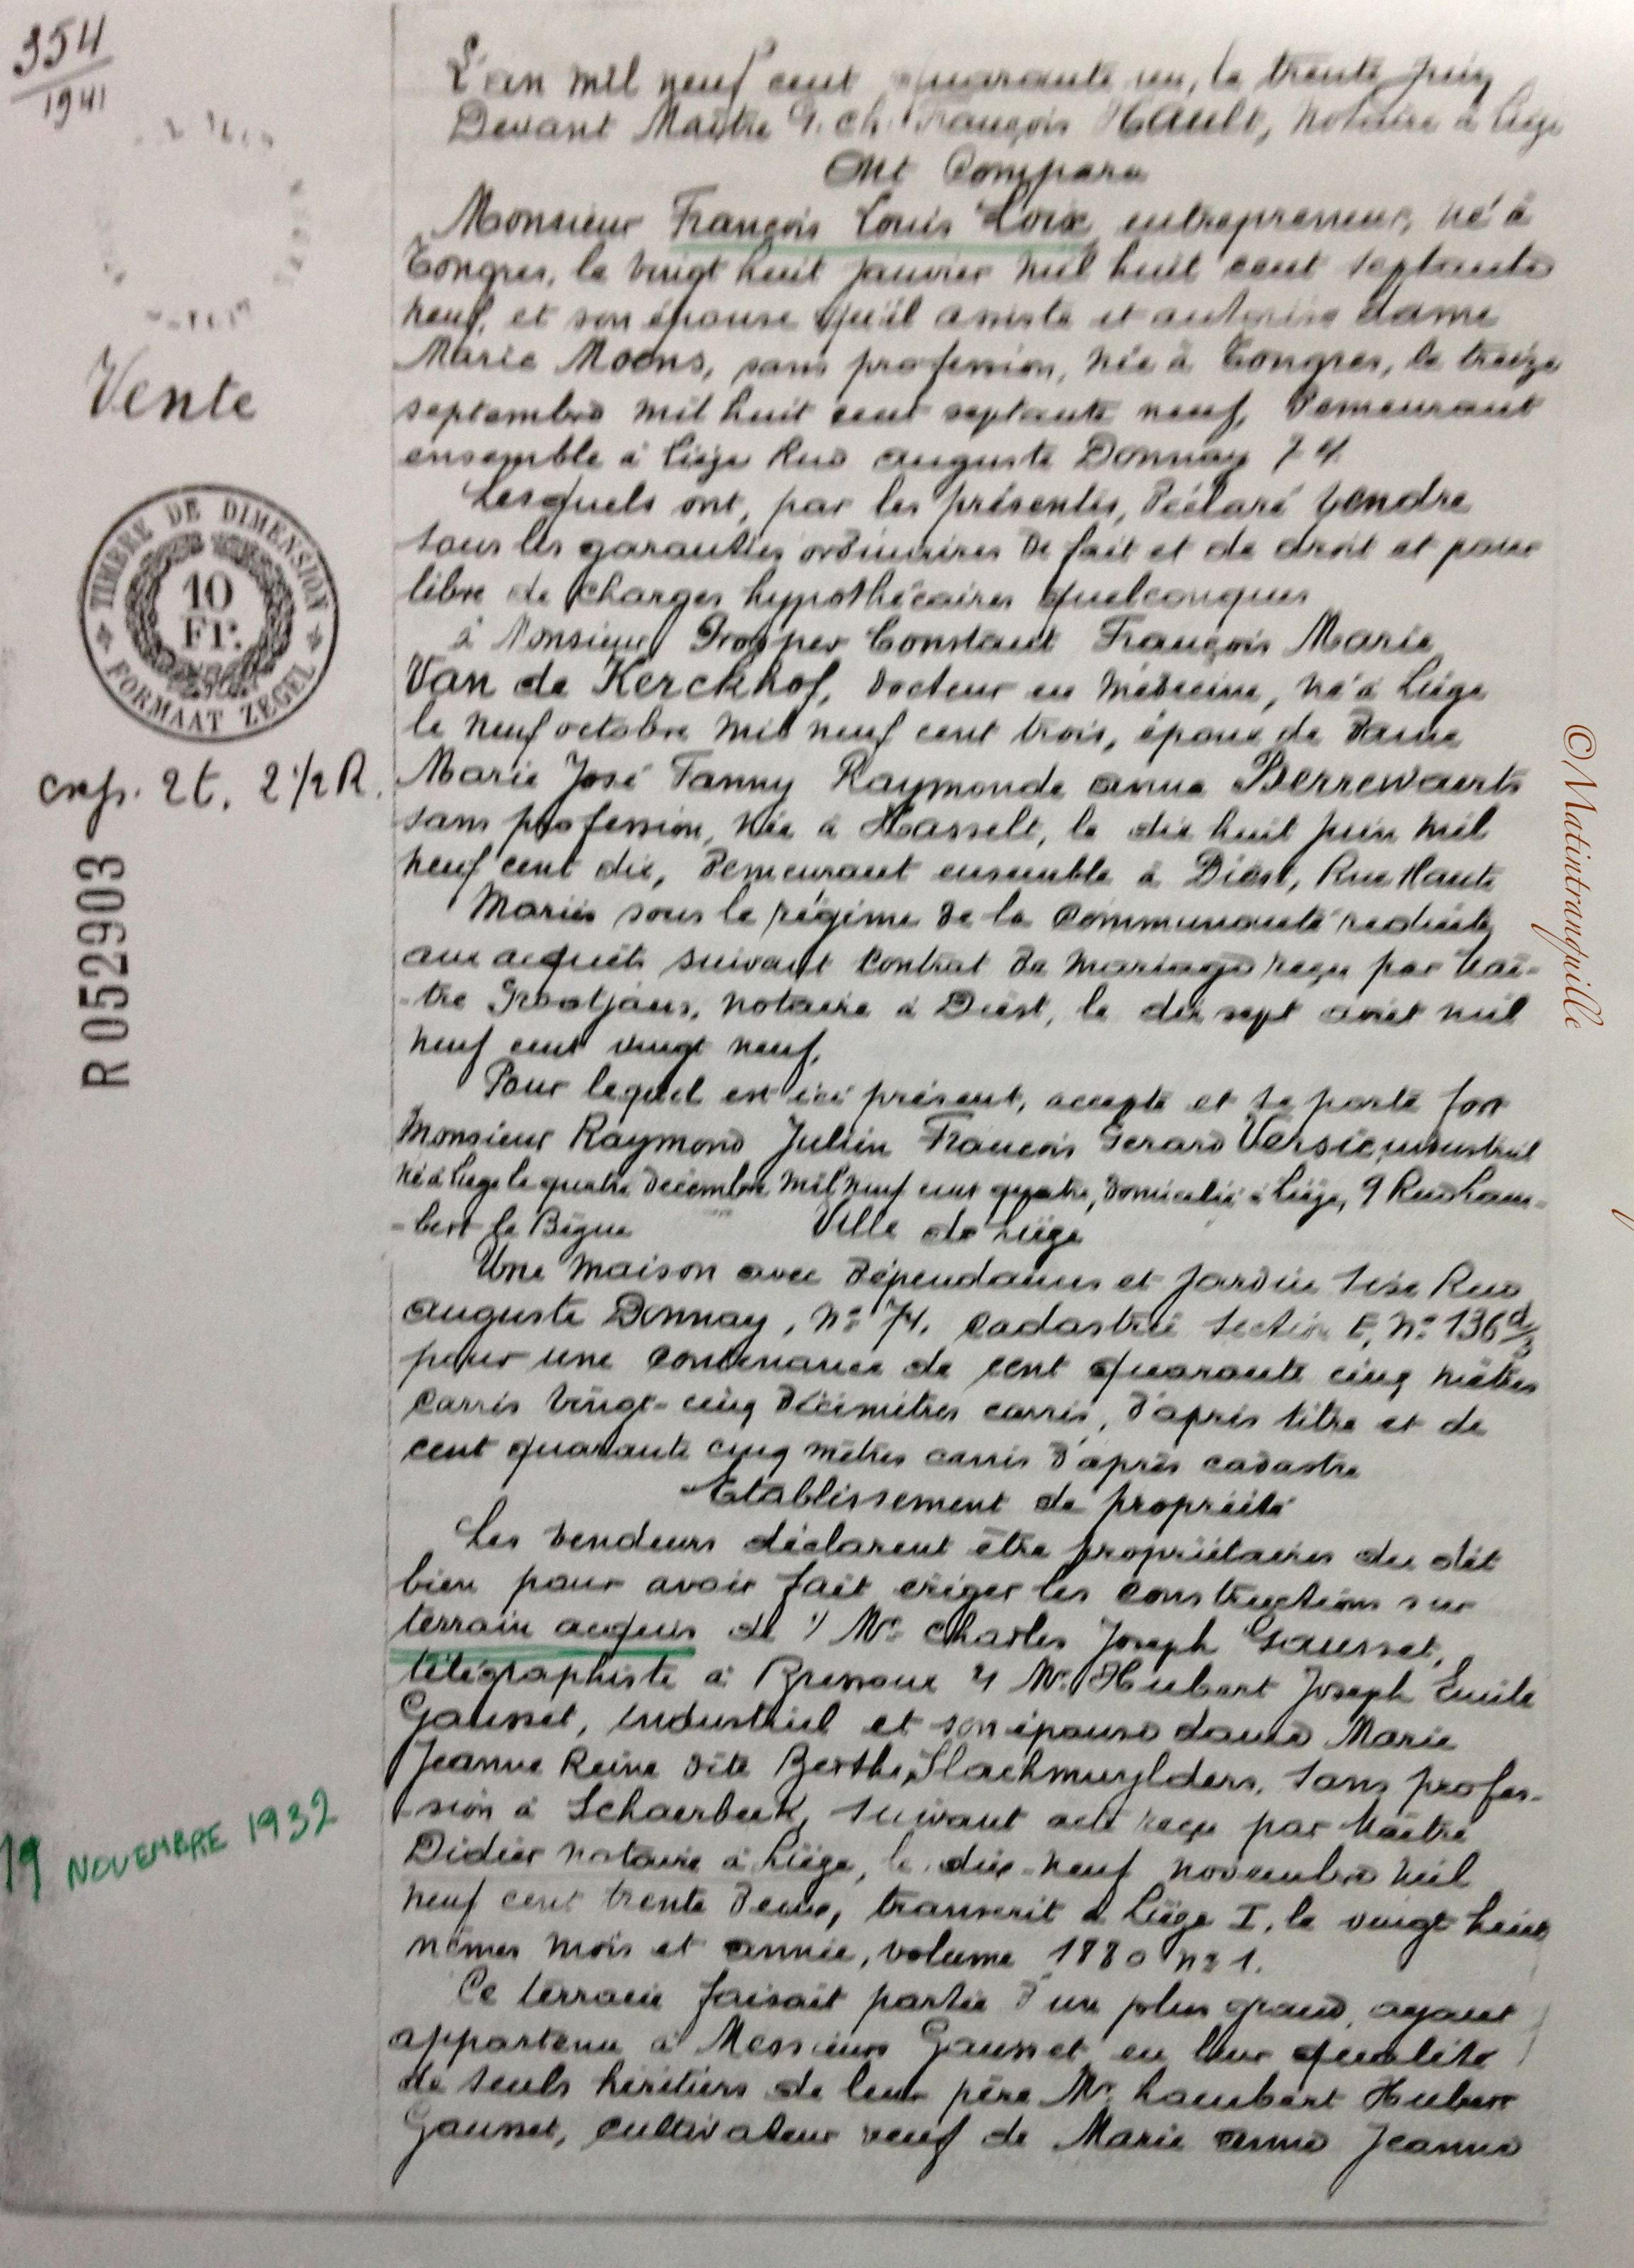 354
1941
Vente
TIMBRE DE DIMENSION
10
Fr.
FORMAAT ZEGEL
exp. 2t. 2 1/2 R.
R 052903
19 NOVEMBRE 1932
L'an mil neuf cent quarante un, le trente juin
Devant Maître G. ch. François Hault, Notaire à Liége
Ont Comparu
Monsieur François Louis Loix, entrepreneur, né à
Tongres, le vingt huit janvier mil huit cent septante
neuf, et son épouse qu'il assiste et autorise dame
Marie Moons, sans profession, née à Tongres, le treize
septembre mil huit cent septante neuf, demeurant
ensemble à Liége Rue Auguste Donnay 74
Lesquels ont, par les présentes, déclaré vendre
sous les garanties ordinaires de fait et de droit et pour
libre de charges hypothécaires quelconques
à Monsieur Prosper Constant François Marie
Van de Kerckhof, Docteur en Médecine, né à Liége
le neuf octobre mil neuf cent trois, époux de Dame
Marie José Fanny Raymonde Anna Berrewaerts
sans profession, née à Hasselt, le dix huit juin mil
neuf cent dix, demeurant ensemble à Diest, Rue Haute
Mariés sous le régime de la Communauté réduite
aux acquêts suivant Contrat de Mariage reçu par Maî-
-tre Grootjans, notaire à Diest, le dix sept avril mil
neuf cent vingt neuf.
Pour lequel est ici présent, accepte et se porte fort
Monsieur Raymond Julien François Gerard Versie, industriel
né à Liége le quatre Décembre mil neuf cent quatre, domicilié à Liége, 9 Rue Lam-
-bert le Bègue Ville de Liége
Une maison avec dépendances et jardin sise Rue
Auguste Donnay, n° 74, cadastrée section E, n° 136 d/3
pour une contenance de cent quarante cinq mètres
carrés vingt-cinq décimètres carrés, d'après titre et de
cent quarante cinq mètres carrés d'après cadastre
Etablissement de propriété
Les vendeurs déclarent être propriétaires du dit
bien pour avoir fait ériger les constructions sur
terrain acquis de 1/ Mr Charles Joseph Gausset,
télégraphiste à Bressoux 2/ Mr Hubert Joseph Emile
Gausset, industriel et son épouse dame Marie
Jeanne Reine dite Berthe Slachmuylders, sans profes-
-sion à Schaerbeek, suivant acte reçu par Maître
Didier notaire à Liége, le dix-neuf novembre mil
neuf cent trente deux, transcrit à Liége I, le vingt huit
mêmes mois et année, volume 1880 n° 1.
Ce terrain faisait partie d'un plus grand, ayant
appartenu à Messieurs Gausset en leur qualité
de seuls héritiers de leur père Mr Lambert Hubert
Gausset, cultivateur veuf de Marie Anne Jeanne
©Matintranquille